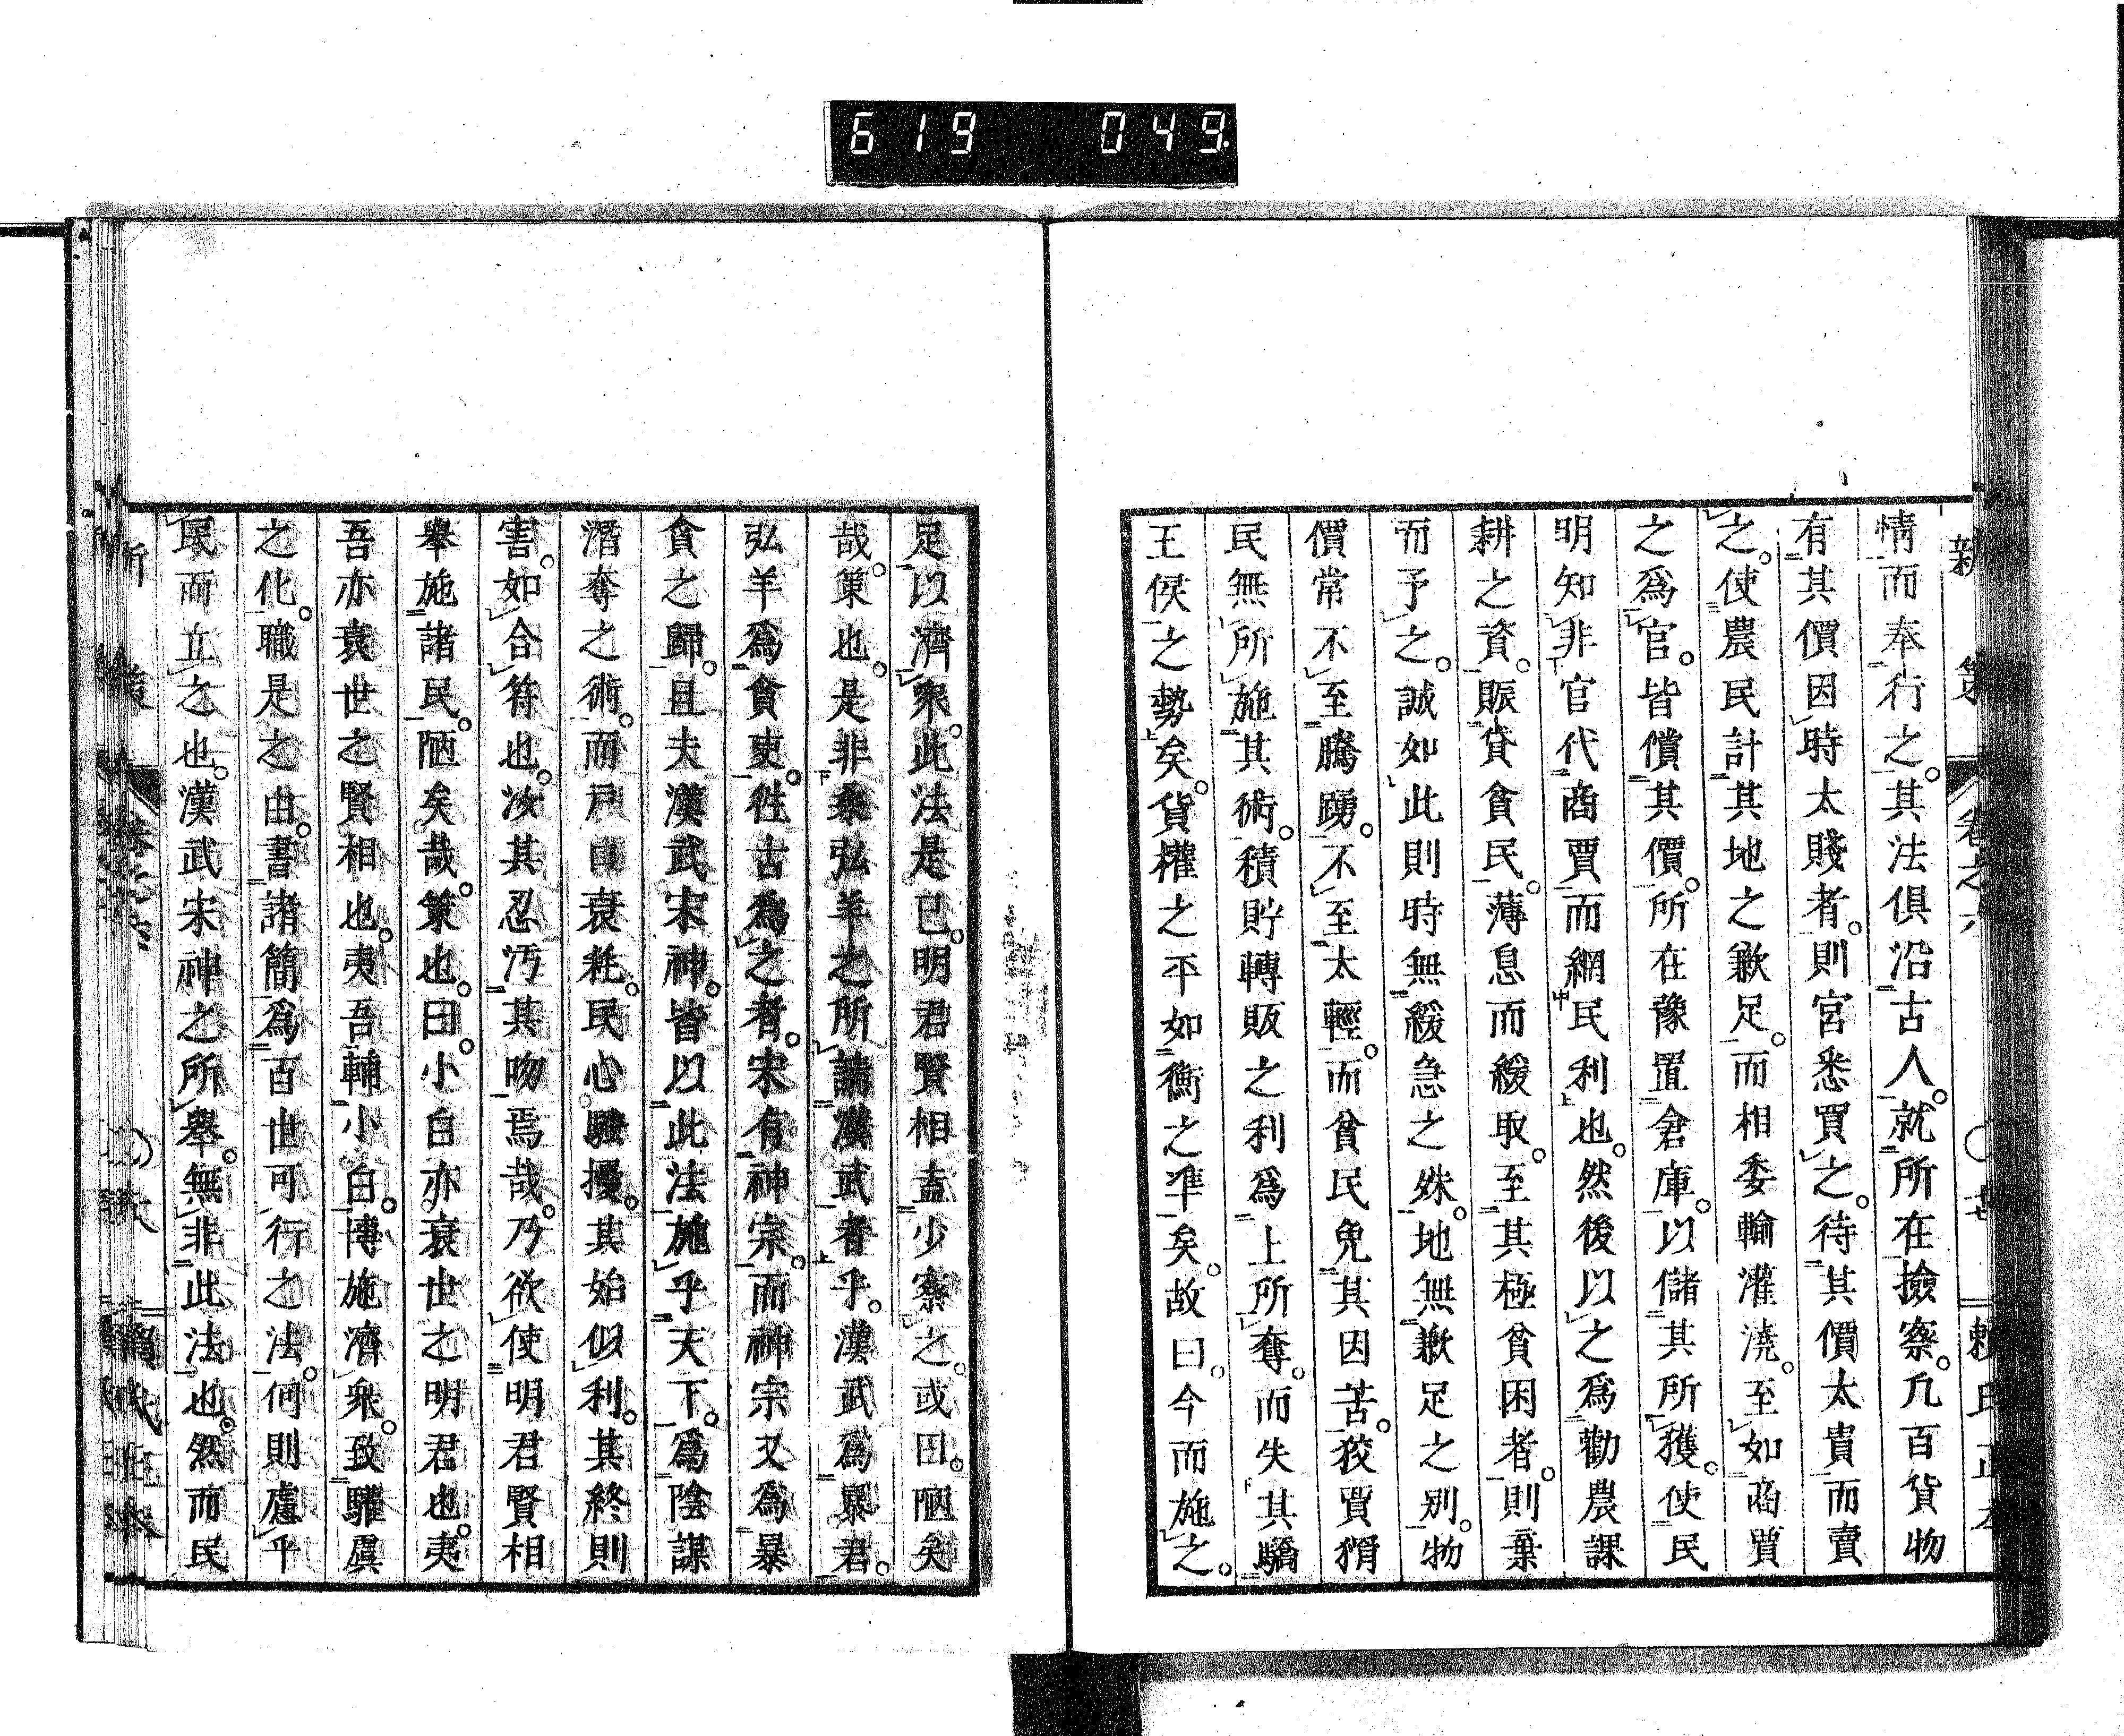 619 049
新策 卷之六 ○廿七 賴氏正本
情而奉行之。其法俱沿古人。就所在撿察。凡百貨物
有其價因時太賤者。則官悉買之。待其價太貴而賣
之。使農民計其地之歉足。而相委輸灌澆。至如商賈
之爲官。皆償其價。所在豫置倉庫。以儲其所獲。使民
明知非官代商賈而網民利也。然後以之爲勸農課
耕之資。賑貸貧民。薄息而緩取。至其極貧困者。則棄
而予之。誠如此則時無緩急之殊。地無歉足之別。物
價常不至騰踴。不至太輕。而貧民免其因苦。狡賈猾
民無所施其術。積貯轉販之利爲上所奪。而失其驕
王侯之勢矣。貨權之平如衡之準矣。故曰。今而施之。
足以濟衆。此法是已。明君賢相盍少察之。或曰。陋矣
哉。策也。是非桑弘羊之所請漢武者乎。漢武爲暴君。
弘羊爲貪吏。徃古爲之者。宋有神宗。而神宗又爲暴
貪之歸。且夫漢武宋神。皆以此法施乎天下。爲陰謀
潛奪之術。而戸口衰耗。民心騷擾。其始似利。其終則
害。如合符也。汝其忍汚其吻焉哉。乃欲使明君賢相
舉施諸民。陋矣哉。策也。曰。小白亦衰世之明君也。夷
吾亦衰世之賢相也。夷吾輔小白。博施濟衆。致驩虞
之化。職是之由。書諸簡爲百世可行之法。何則慮乎
民而立之也。漢武宋神之所舉。無非此法也。然而民